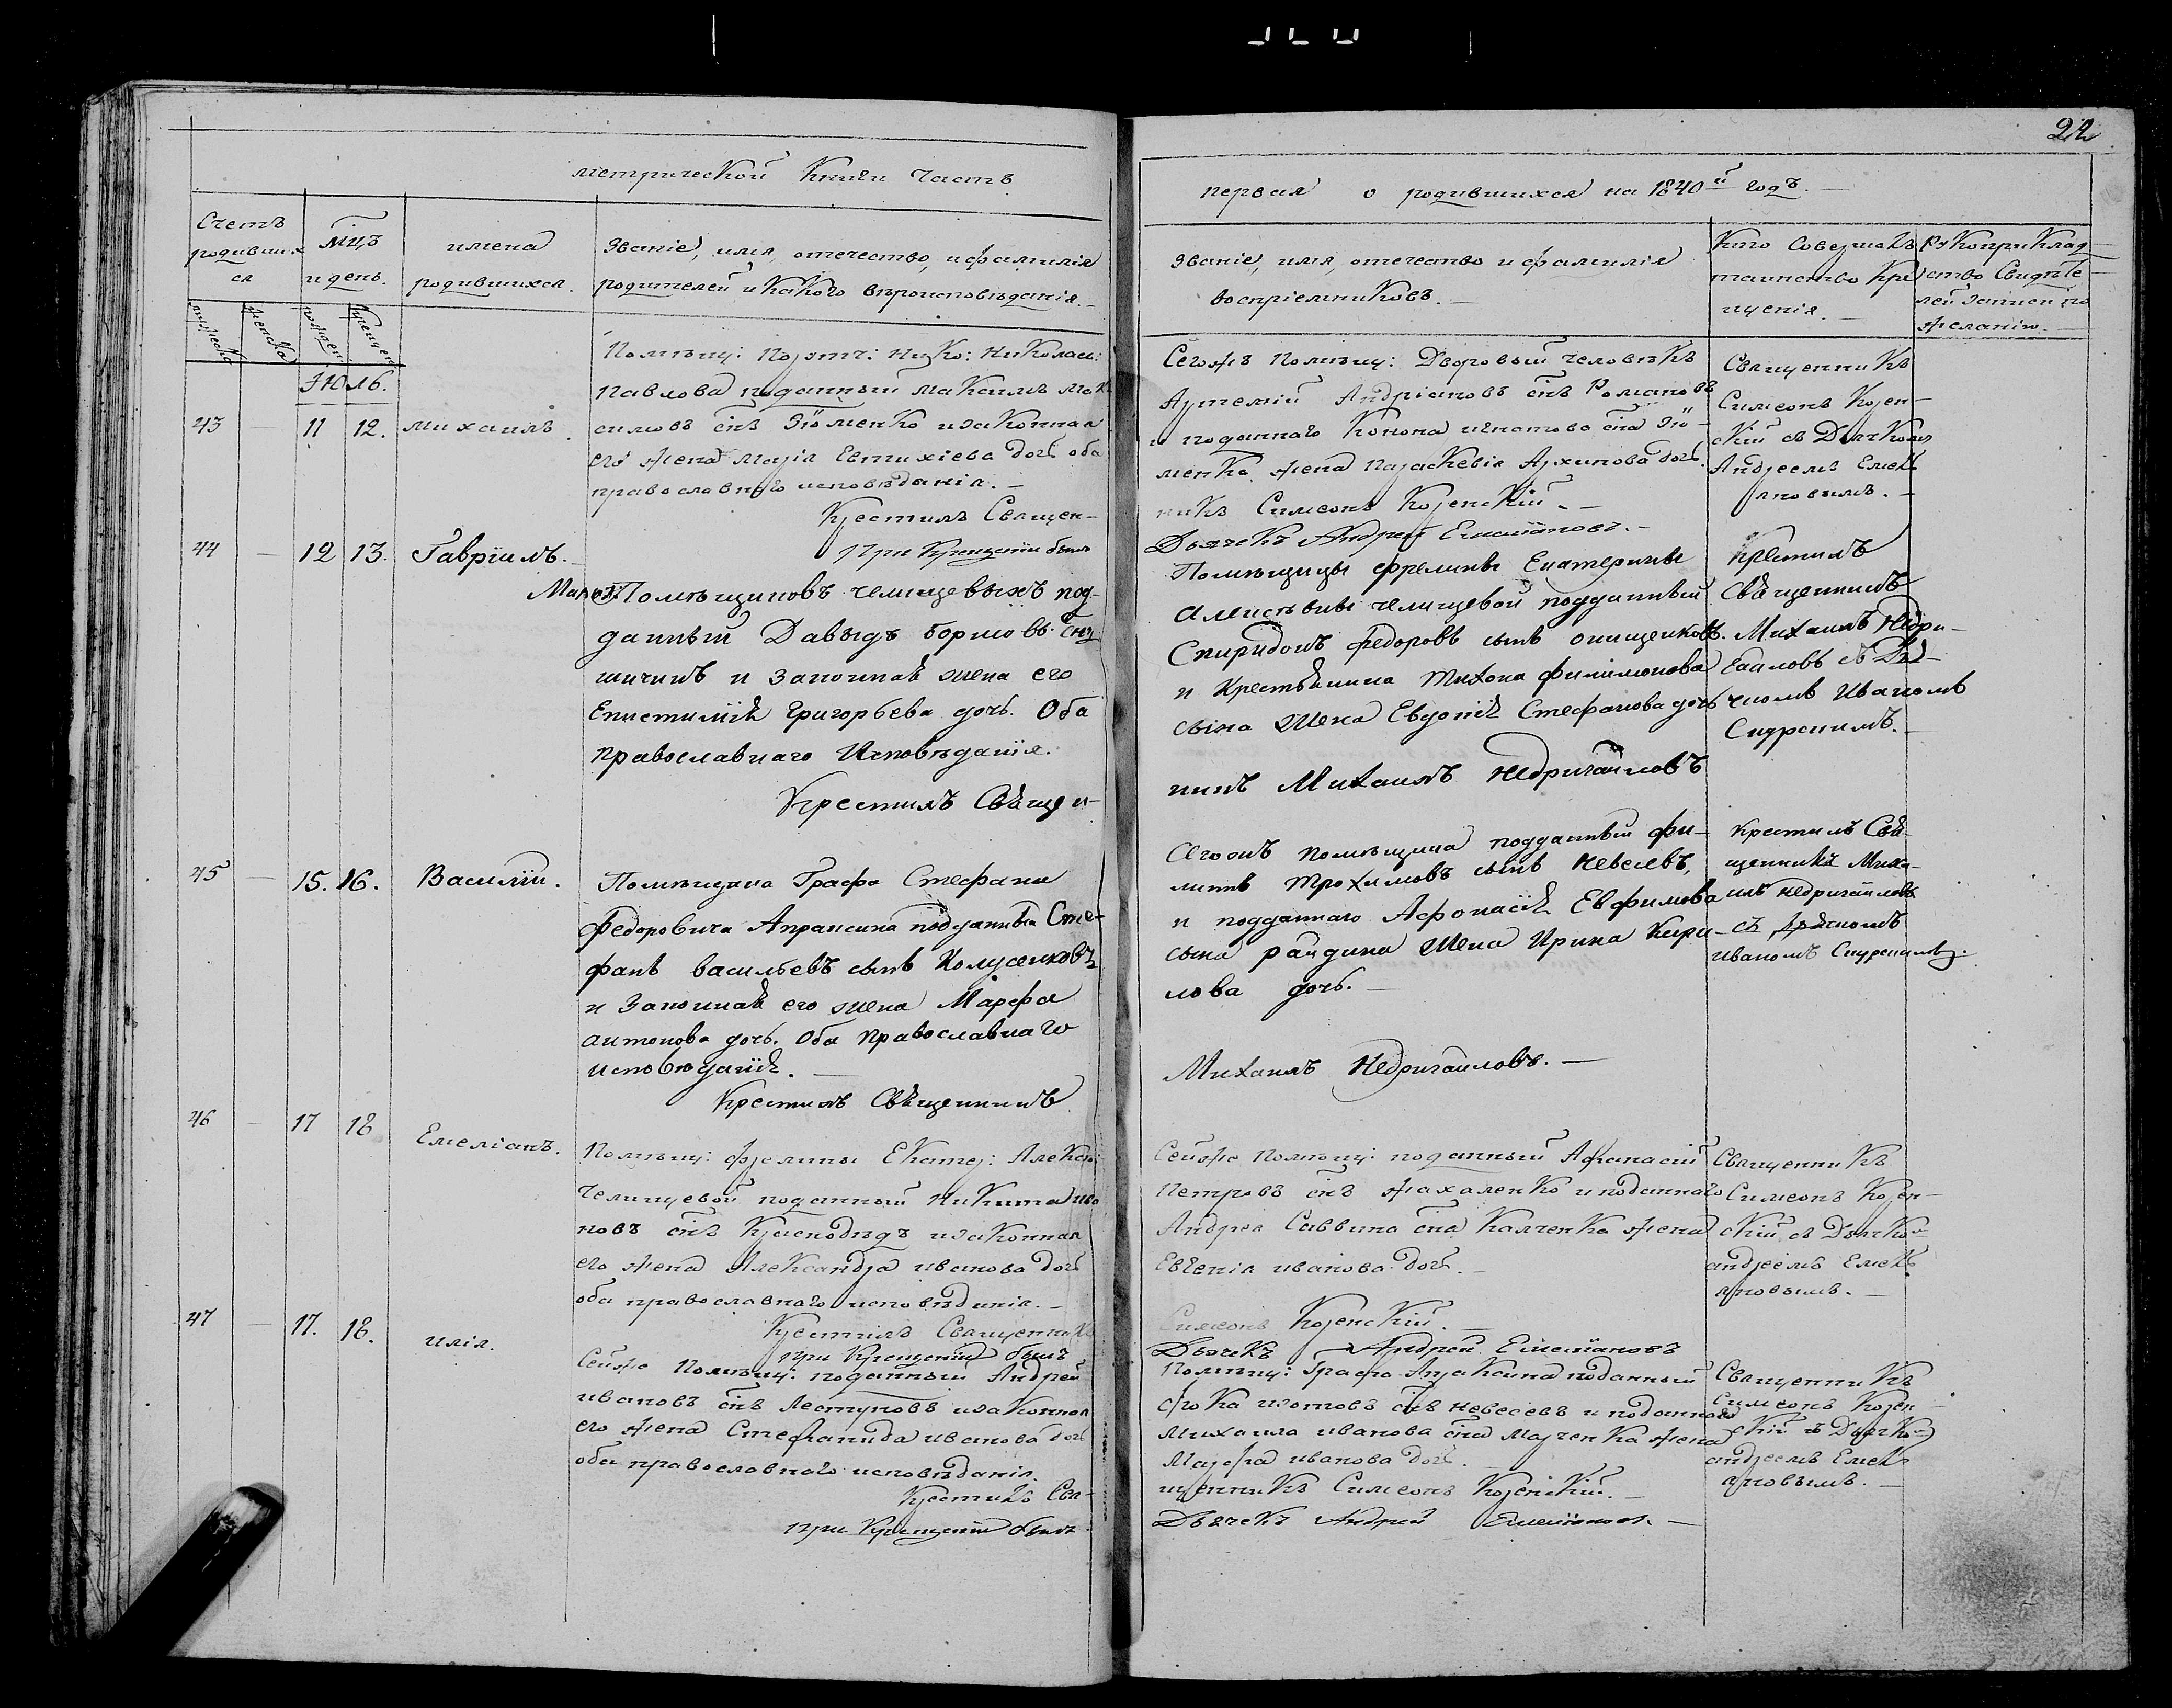 22
метрической Книги Часть
первая о родившихся на 1840й годъ.
Счетъ родившихся
Мцъ и день.
имена родившихся.
Званіе, имя, отечество, и фамилія
родителей и Какого вѣроисповѣданія.
Званіе, имя, отечество и фамилія
воспріемниковъ.
Кто Совершалъ
таинство Кре
щенія.
Рукоприклад
ство Свидѣте
лей записи по
желанію.
Іюль.
43 11 12. Михаилъ.
Помѣщ: Порутч: Николая:
Павлова поданный Максимъ Мак
симовъ снъ Тюменко и законная
его жена Марія Евтихіева дочь оба
православнаго исповѣданія.
Крестилъ Священ-
при Крещеніи былъ
Сегожъ Помѣщ: Дворовый человѣкъ
Артемій Андріановъ снъ Романовъ
и поданнаго Конона игнатова сна Тю-
менка жена Параскевія Архипова дочь.
никъ Симеонъ Коренскій.
Дьячекъ Андрей Емеліановъ.
Священникъ
Симеонъ Корен-
скій съ Дьячкомъ
Андреемъ Емель
яновымъ.
44 12 13. Гавріилъ.
Помѣщиковъ Челищевыхъ под-
данный Давыдъ борисовъ
и законная жена его
Епистимія Григорьева дочь. Оба
православнаго Исповѣданія.
Крестилъ Священ-
Помѣщицы фрелины Екатерины
Алексѣвны челищевой подданный
Спиридонъ федоровъ сынъ онищенковъ.
и Крестьянина Тихона филимонова
сына жена Евдокія Стефанова дочь
никъ Михаилъ Недригайловъ
Крестилъ
Священникъ
Михаилъ Недри-
гайловъ съ Дья-
чкомъ Иваномъ
45 15. 16. Василій.
Помѣщика Графа Стефана
Федоровича Апраксина подданный Сте-
фанъ васильевъ сынъ
и Законная его жена Марфа
антонова дочь. Оба православнаго
исповѣданія.
Крестилъ Священникъ
Сегожъ помѣщика подданный фи-
липъ Трохимовъ сынъ Невесевъ,
и подданнаго Афонасія Евфимова
сына жена Ирина Кири-
лова дочь.
Михаилъ Недригайловъ.
Крестилъ Свя-
щенникъ Миха-
илъ Недригайловъ
съ Дьячкомъ
иваномъ
46 17 18 Емеліанъ.
Помѣщ: фрелины Екатер: Алексѣ:
Челищевой поданный Никита ива
новъ снъ Краснодѣдъ и законная
его жена Александра иванова дочь
оба православнаго исповѣданія.
Крестилъ Священникъ
при Крещеніи былъ
Сейже Помѣщ: поданный Афанасій
Петровъ снъ Жахаленко и поданнаго
Андрея Саввина сна Калченка жена
Евгенія иванова дочь.
Симеонъ Коренскій.
Дьячекъ Андрей Емеліановъ
Священникъ
Симеонъ Корен-
скій съ Дьячко-
андреемъ Емель
яновымъ.
47 17. 18. илія.
Сейже Помѣщ: поданный Андрей
ивановъ снъ и законная
его жена Стефанида иванова дочь
оба православнаго исповѣданія.
Крестилъ Свя-
при Крещеніи былъ
Помѣщ: Графа Апраксина поданный
изотовъ снъ Невесевъ и поданнаго
Михаила иванова сна Марченка жена
Марфа иванова дочь.
щенникъ Симеонъ Коренскій.
Дьячекъ Андрей Емеліановъ.
Священникъ
Симеонъ Корен
скій съ Дьячко-
андреемъ Емель
яновымъ.